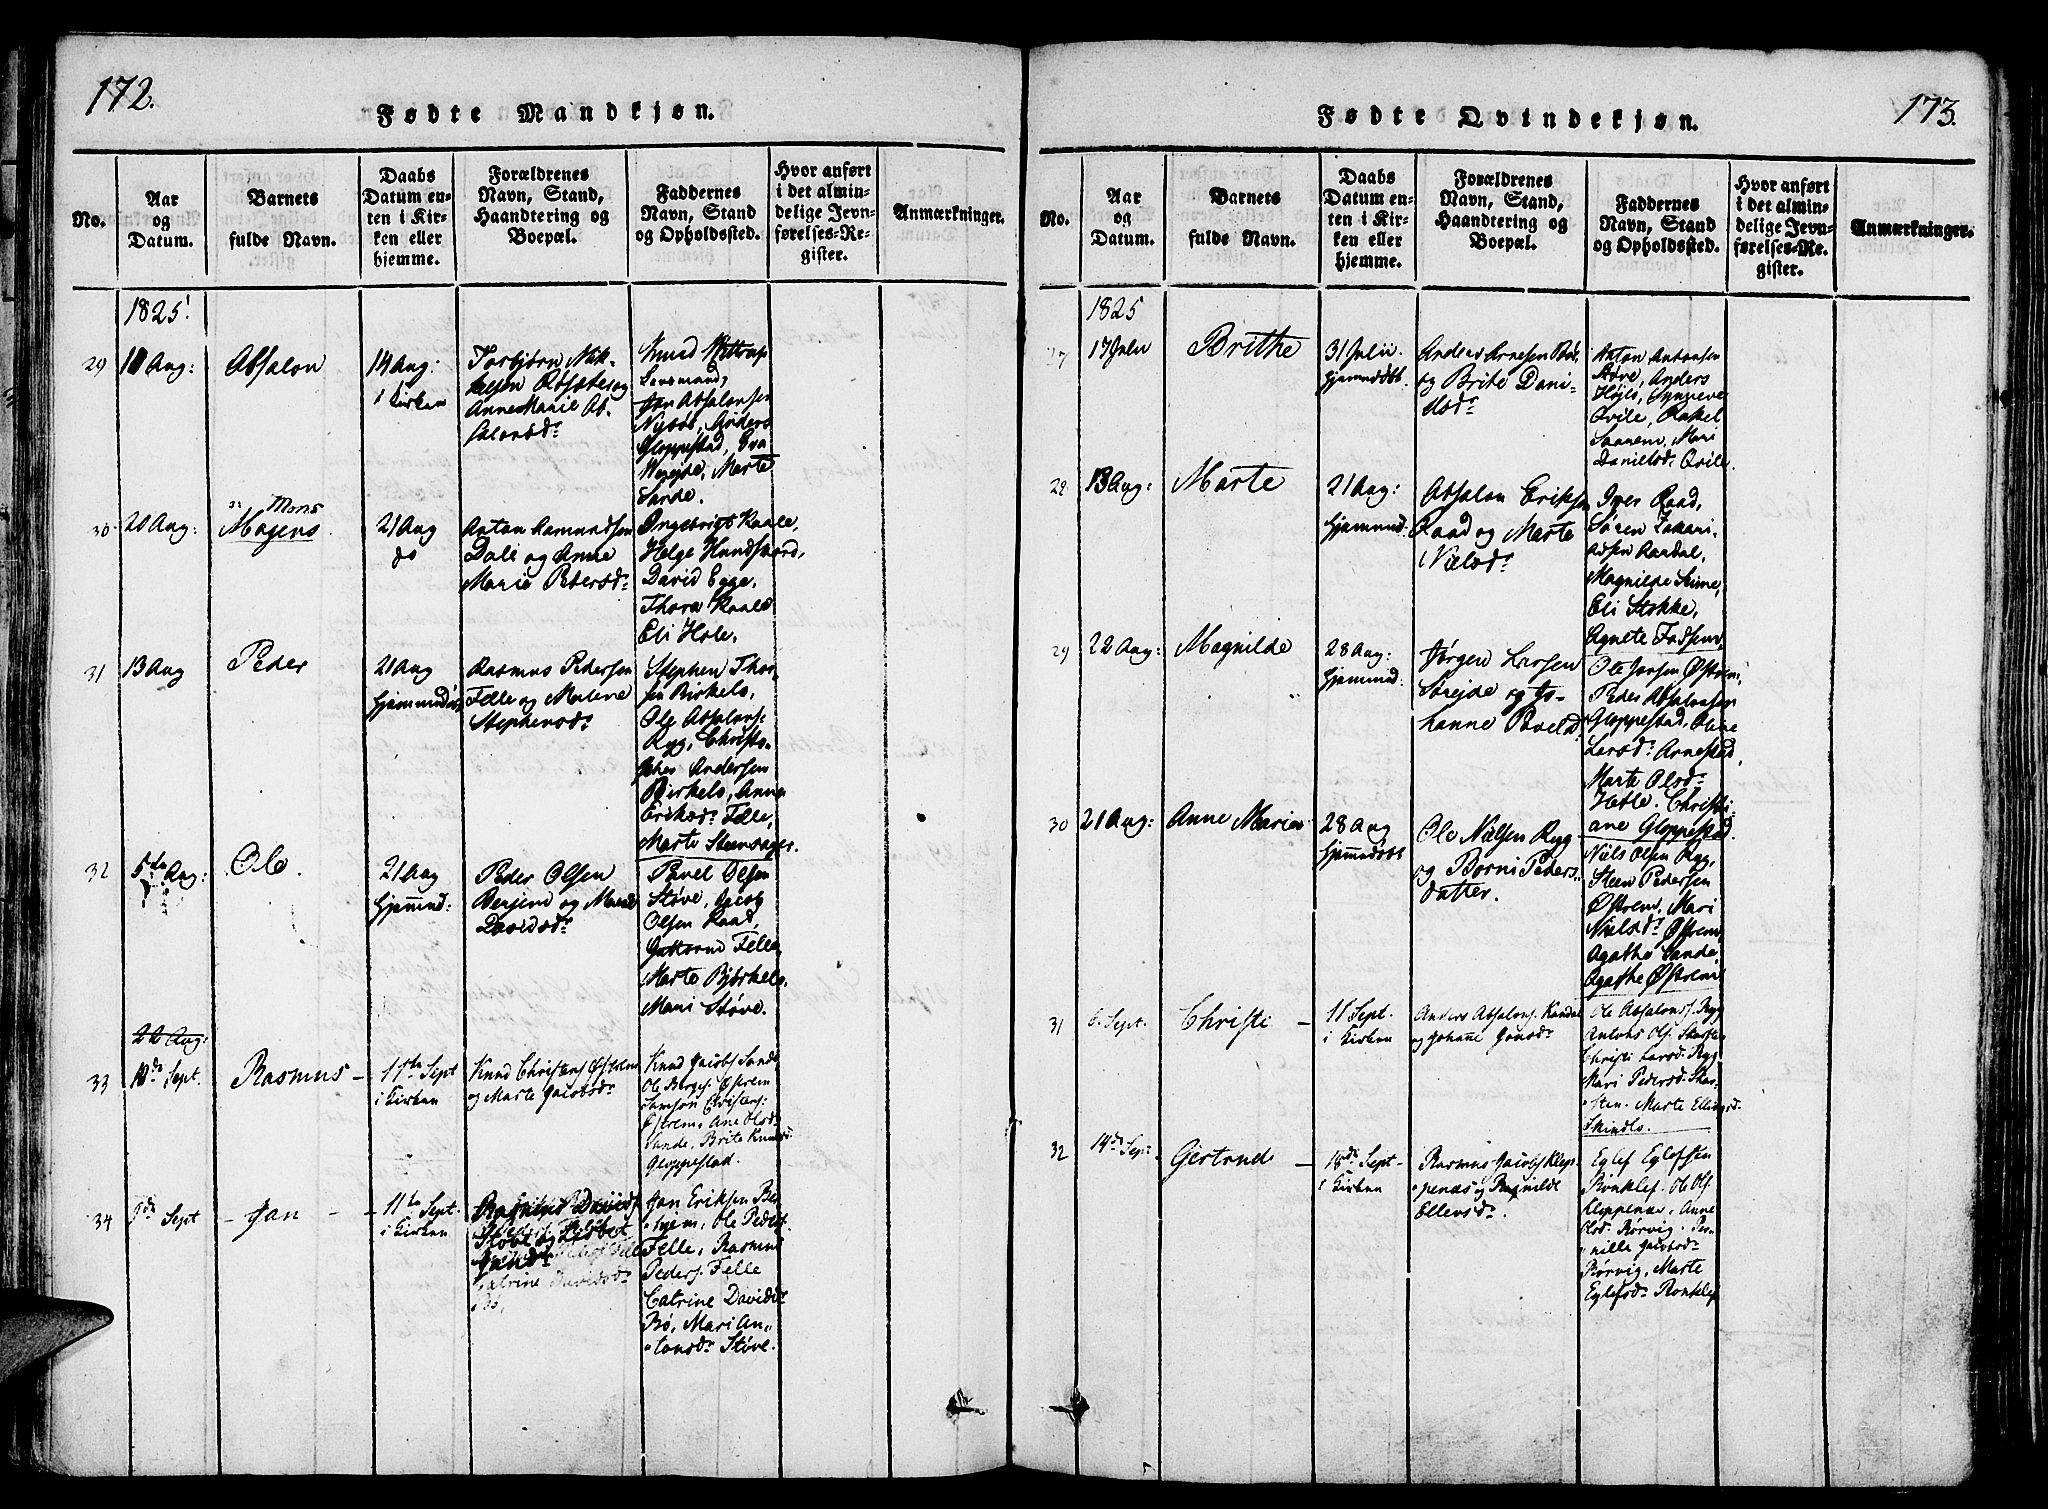 172.
Fødte Mandkjøn.
No.
Aar
og
Datum.
Barnets
fulde Navn.
Daabs
Datum en-
ten i Kir-
ken eller
hjemme.
Forældrenes
Navn, Stand,
Haandtering og
Boepæl.
Faddernes
Navn, Stand
og Opholdssted.
Hvor anført
i det almin-
delige Jevn-
førelses-Re-
gister.
Anmærkninger.
1825.
29
Aug:
Absalon
14 Aug:
i Kirken
Torbjørn Mik-
kelsen og
Anne Marie Ab-
salonsd.
Knud
Lensmand,
Jan Absalonsen
Nybøe, Anders
Gloppestad, Eva
Marte
Sande.
30
20 Aug:
Mons
Mogens
21 Aug
do
Anton Aamundsen
Dale og Anne
Marie Pedersd.
Ingebrigt Kaale,
Helge Hundskaard,
David Egge,
Thora Kaale
Eli Hole.
31
13 Aug
Peder
21 Aug
hjemmed.
Rasmus Pedersen
Felle og Malene
Stephensd.
Stephen Thor-
sen Birkelo,
Ole Absalons:
Ryg, Christo-
pher Andersen
Birkelo, Anne
Eriksd. Felle,
Marte Steensager.
32
5te Aug:
Ole.
21 Aug
hjemmed:
Peder Olsen
Berjem og Mari
Davidsd.
Pavel Olsen
Støve, Jacob
Olsen Raad,
Guttorm Felle
Marte Bjørkelo.
Mari Støve.
22 Aug:
33
10de Sept.
Rasmus
11te Sept
i Kirken
Knud Christens Østrem
og Marte Jacobsd.
Knud Jacobs Sande
Ole Børges. Østrem
Samson Christens:
Østrem, Ane Olsd.
Sande, Brite Knudsd.
Gloppestad.
34
9de Sept
Jan
11te Sept.
i Kirken
Catrine Davidsd.
Bø,
Jan Eriksen Ber-
hjem, Ole Peders.
Felle, Rasmus
Peders. Felle
Catrine Davidsd.
Bø, Mari An-
tonsd. Støve.
173.
Fødte Qvindekjøn.
No.
Aar
og
Datum.
Barnets
fulde Navn.
Daabs
Datum en-
ten i Kir-
ken eller
hjemme.
Forældrenes
Navn, Stand,
Haandtering og
Boepæl.
Faddernes
Navn, Stand
og Opholdssted.
Hvor anført
i det almin-
delige Jevn-
førelses-Re-
gister.
Anmærkninger.
1825
27
17 Julii
Brithe
31 Julii.
hjemmedøbt.
Anders Arnesen Bø,
og Brite Dani-
elsd.
Anton Antonsen
Støve, Anders
Højlo, Synneve
Qvile, Rakel
Saarem, Mari
Danielsd. Qvile.
28
13 Aug:
Marte
21 Aug:
hjemmed:
Absalon Eriksen
Raad og Marte
Nielsd.
Iver Raad,
Søren Zakari-
asen Raadal,
Magnilde Seime,
Eli Stokke,
Agnete
29
22 Aug:
Magnilde
28 Aug:
hjemmed:
Jørgen Larsen
Sørejde og Jo-
hanne Povelsd.
Ole Jansen Østrem,
Peder Absalonsen
Gloppestad, Oline
Larsd. Arnestad,
Marte Olsd.
Hetle. Christi-
ane Gloppestad.
30
21 Aug:
Anne Marie
28 Aug
hjemmedøbt
Ole Nielsen Ryg
og Borni Peders-
datter.
Niels Olsen Ryg,
Steen Pedersen
Østrem, Mari
Nielsd. Østrem,
Agathe Sande,
Agathe Østrem
31
6. Sept.
Christi
11 Sept.
i Kirken
Anders Absalons. Kandal
og Johanne Jonsd.
Ole Absalons. Ryg
Antons Ols.
Christi Larsd. Ryg
Mari Pedersd. Skar-
sten. Marte Ellingsd.
Skindlo.
32
14de Sept.
Gertrude
18de Sept
i Kirken
Rasmus Jacobs Klop-
penæs og Ragnilde
Ellersd.
Eglef Eglefsen
Ronklef. Ole Ols.
Kloppenæs, Anne
Olsd. Rørvig. Per-
nille Jacobsd.
Rørvig, Marte
Eglefsd. Ronklef